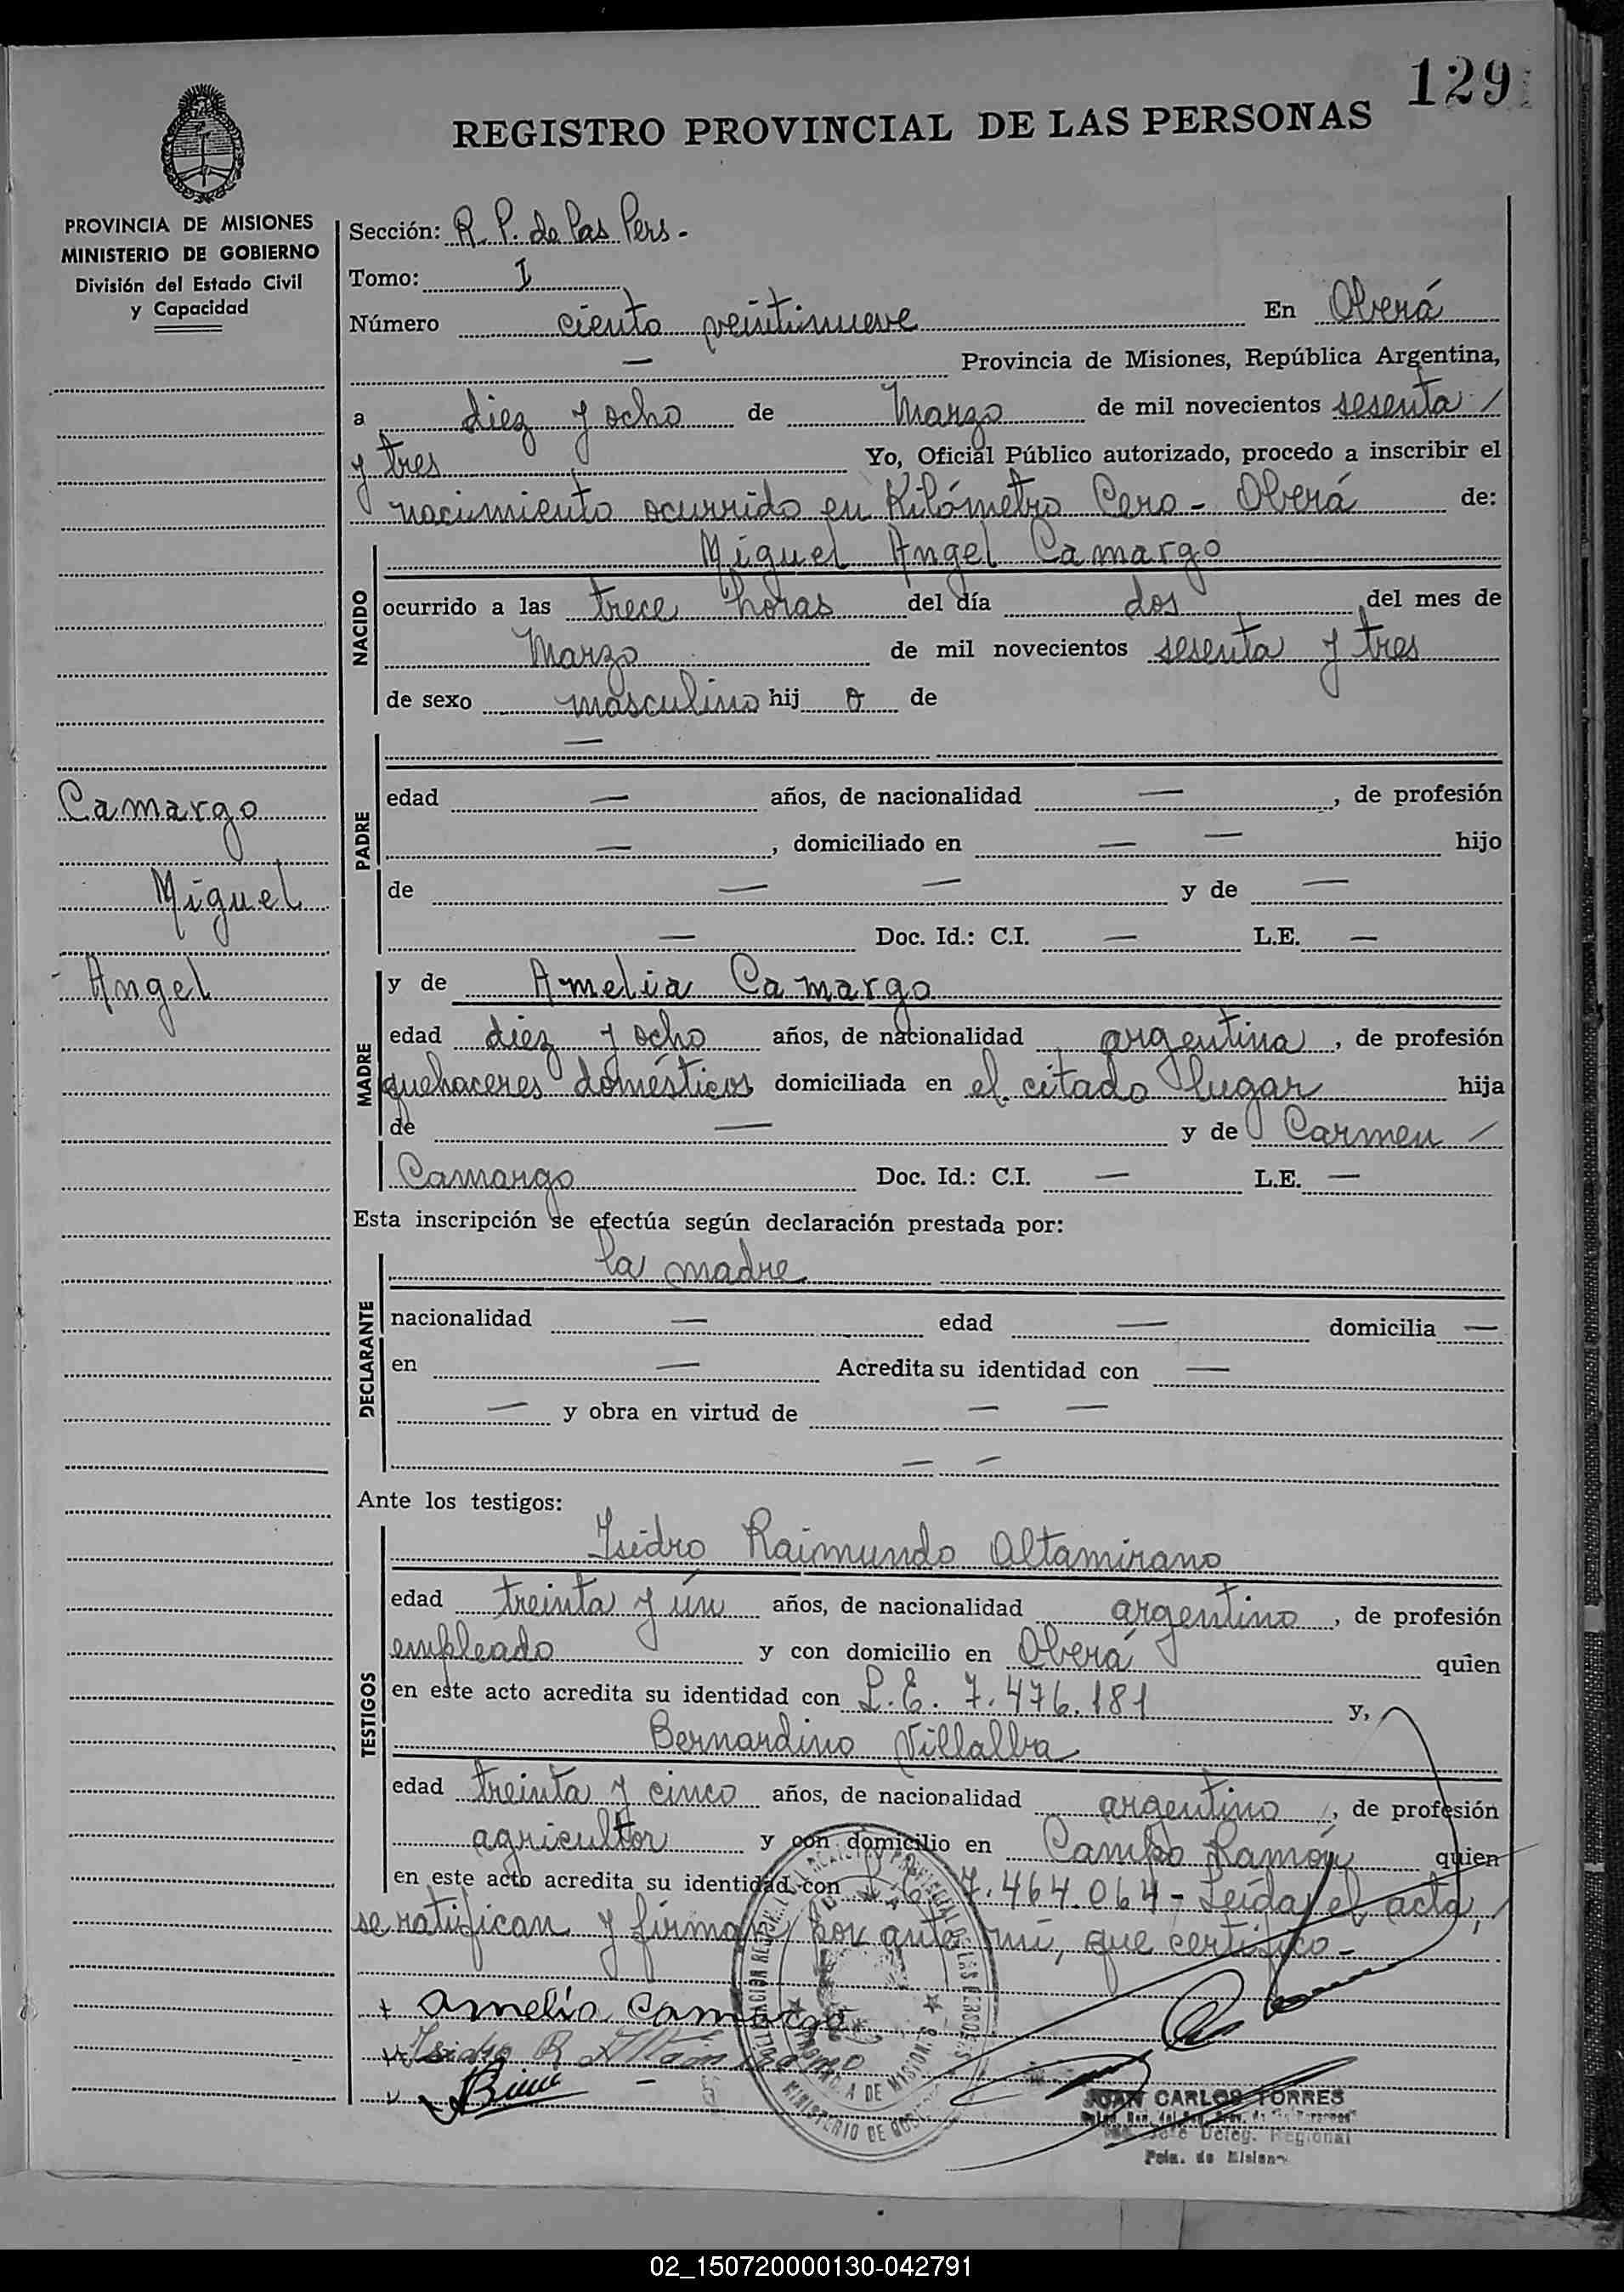 129
REGISTRO PROVINCIAL DE LAS PERSONAS
PROVINCIA DE MISIONES
MINISTERIO DE GOBIERNO
División del Estado Civil
y Capacidad
Camargo
Miguel
Angel
Sección: R. P. de las Pers.
Tomo: I
Número ciento veintinueve En Oberá
— Provincia de Misiones, República Argentina,
a diez y ocho de Marzo de mil novecientos sesenta /
y tres Yo, Oficial Público autorizado, procedo a inscribir el
nacimiento ocurrido en Kilómetro Cero - Oberá de:
NACIDO
Miguel Angel Camargo
ocurrido a las trece horas del día dos del mes de
Marzo de mil novecientos sesenta y tres
de sexo masculino hij o de
PADRE
—
edad — años, de nacionalidad —, de profesión
—, domiciliado en — — hijo
de — — y de —
— Doc. Id.: C.I. — L.E. —
MADRE
y de Amelia Camargo
edad diez y ocho años, de nacionalidad argentina, de profesión
quehaceres domésticos domiciliada en el citado lugar hija
de — y de Carmen /
Camargo Doc. Id.: C.I. — L.E. —
Esta inscripción se efectúa según declaración prestada por:
DECLARANTE
la madre
nacionalidad — edad — domicilia —
en — Acredita su identidad con —
— y obra en virtud de — —
— —
Ante los testigos:
TESTIGOS
Isidro Raimundo Altamirano
edad treinta y ún años, de nacionalidad argentino, de profesión
empleado y con domicilio en Oberá quien
en este acto acredita su identidad con L.E. 7.476.181 y,
Bernardino Villalba
edad treinta y cinco años, de nacionalidad argentino, de profesión
agricultor y con domicilio en Campo Ramón quien
en este acto acredita su identidad con L.E. 7.464.064 - Leída el acta,
se ratifican y firman por ante mí, que certifico -
Amelia Camargo
Isidro R Altamirano
JUAN CARLOS TORRES
Jefe Deleg. Regional
Pcia. de Misiones
MINISTERIO DE GOBIERNO
PROVINCIA DE MISIONES
02_150720000130-042791